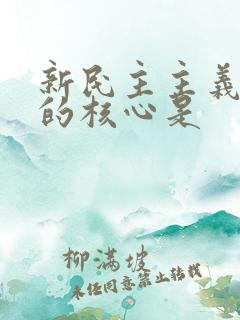 新民主主义
的核心是
柳满坡
未经同意禁止转载